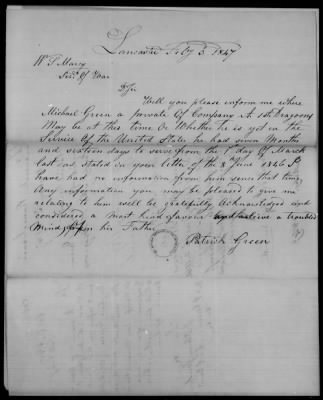 Lancaster Feby 3, 1847
Wm L Marcy
Secr. Of War
Sir
Will you please inform me where
Michael Green a private Of Company A. 1st Dragoons
May be at this time Or Whether he is yet in the
Service Of the United States he had seven Months
and sixteen days to serve from the 1 day Of March
last as stated in your letter Of the 8th June 1846 I
have had no information from him since that time
Any information you may be pleased to give me
relating to him will be gratefully Acknowledged and
considered a most kind favour and relieve a troubled
Mind from his Father
Patrick Green